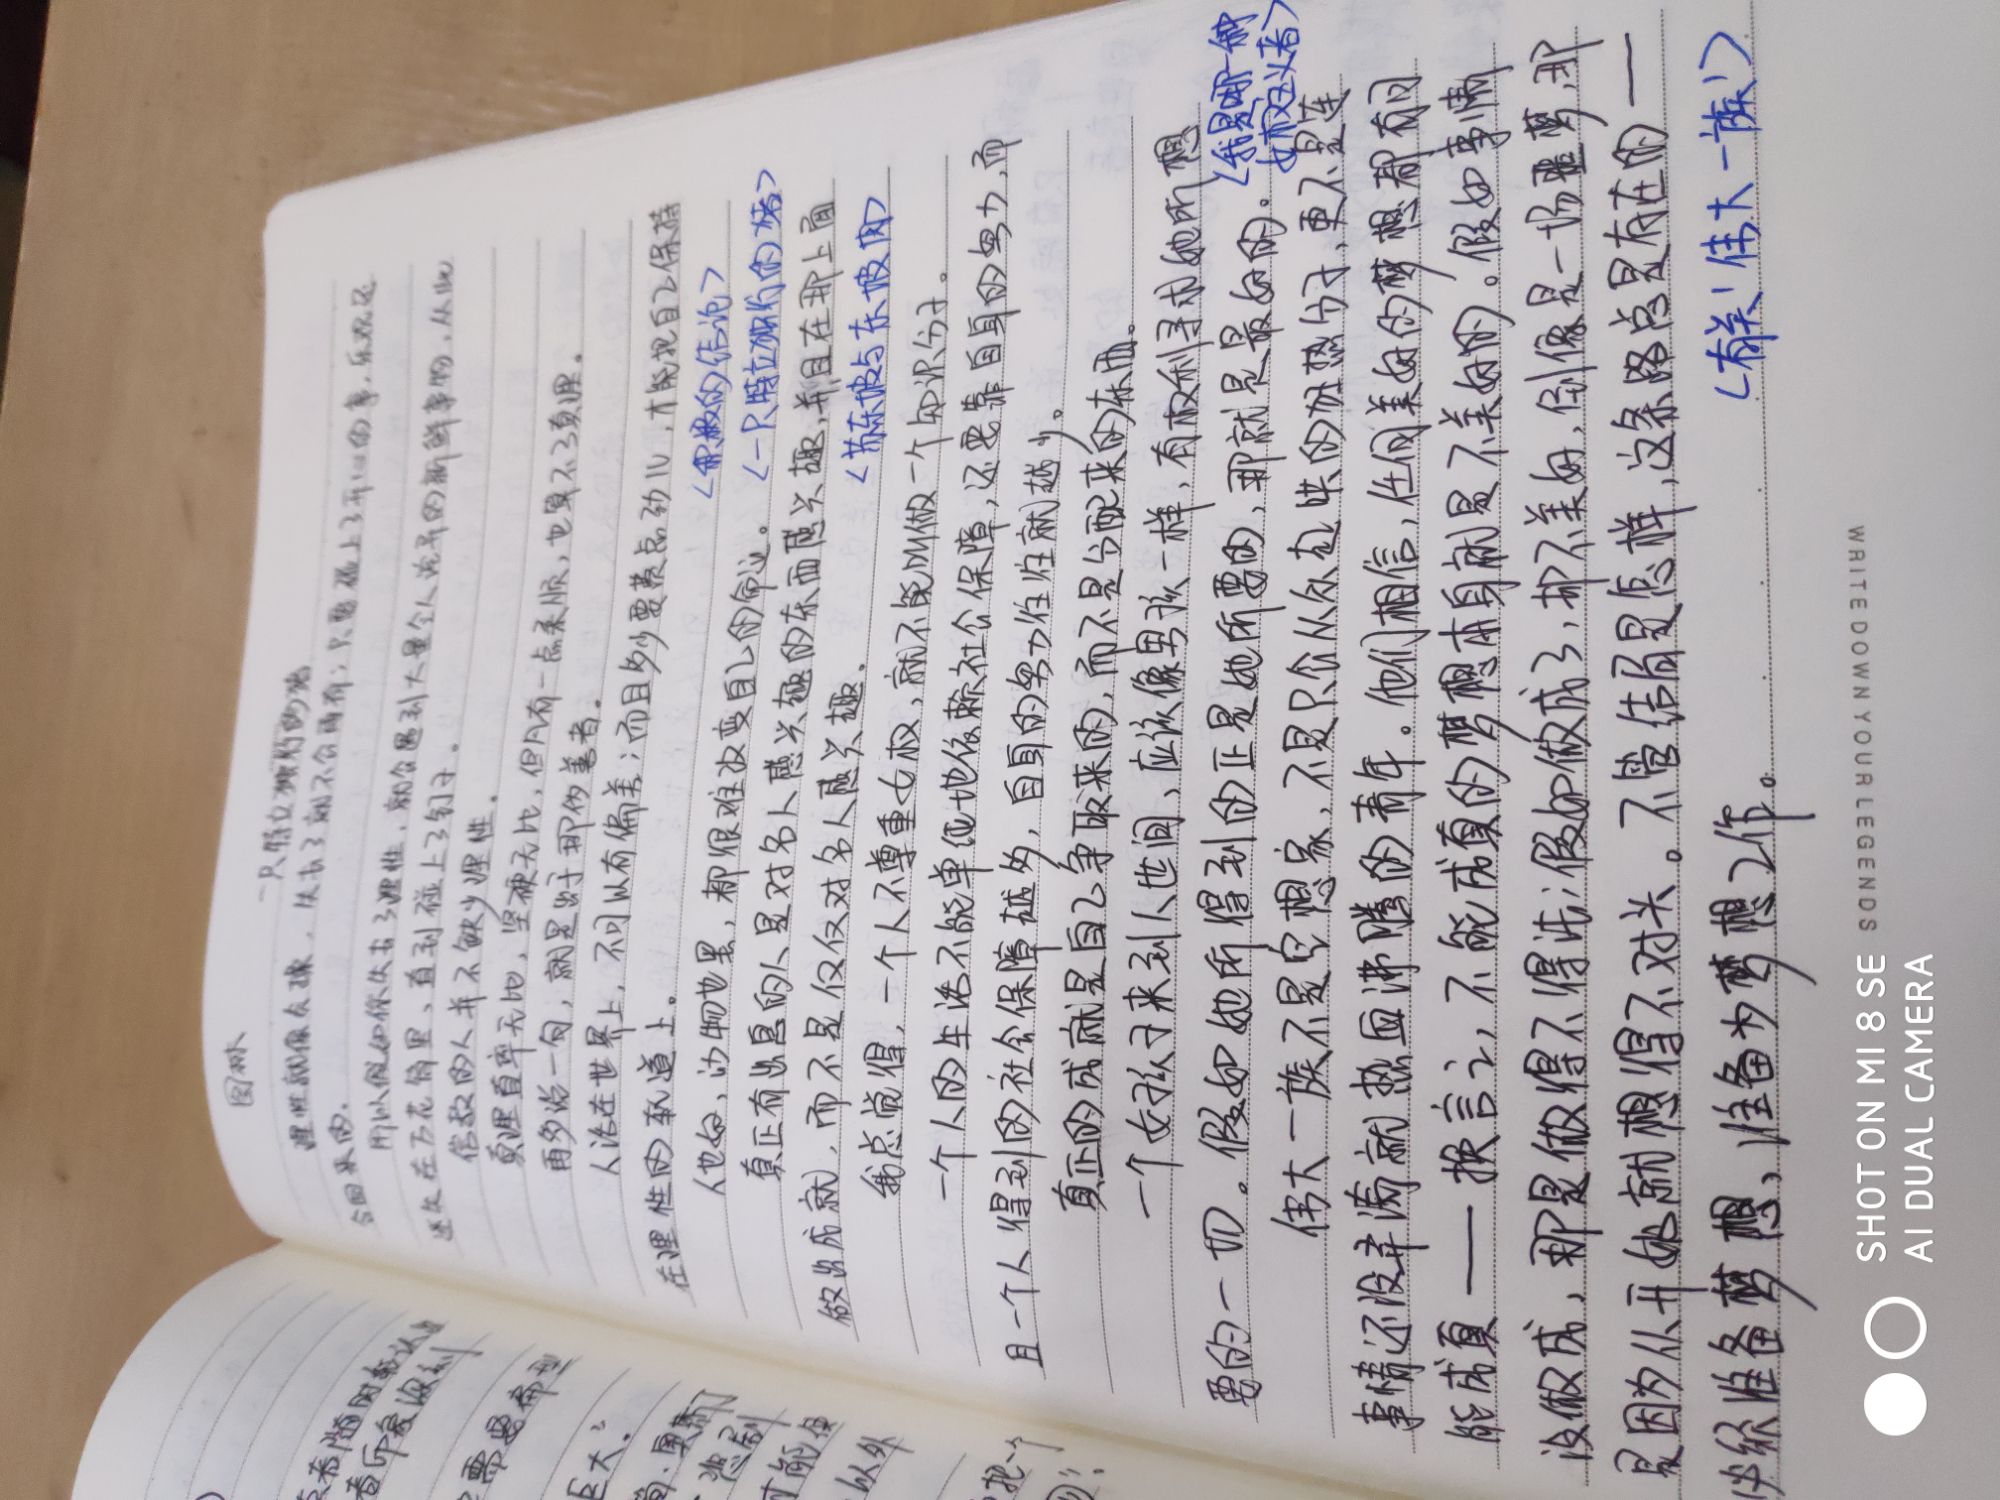 一只特立独行的猪
理性就像贞操，失去了就不会再有；只要碰上了开心的事，乐观还
会回来的。
所以假如你失去了理性，就会遇到大量令人诧异的新鲜事物，从此
迷失在万花筒里，直到碰上了钉子。
信教的人并不缺少理性。
真理直率无比，坚硬无比，但凡有一点柔脉，也算不了真理。
再多说一句，就是出于那伪善者。
人活在世界上，不可以有偏差；而且多少要费点劲儿，才能把自己保持
在理性的轨道上。
〈积极的结论〉
人也好，动物也罢，都很难改变自己的命运。
〈一只特立独行的猪〉
真正有出息的人是对名人感兴趣的东西感兴趣，并且在那上面
做出成就，而不是仅仅对名人感兴趣。
〈苏东坡与东坡肉〉
我总觉得，一个人不尊重女权，就不能叫做一个知识分子。
一个人的生活不能单纯地依赖社会保障，还要靠自身的努力，而
且一个人得到的社会保障越多，自身的努力往往就越少。
真正的成就是自己争取来的，而不是分配来的东西。
一个女孩子来到人世间，应该像男孩一样，有权利寻求她所想
要的一切。假如她所得到的正是她所要的，那就是最好的。
〈我是哪一种
女权主义者〉
伟大一族不是空想家，不是只会从众起哄的狂热分子，更不是连
事情还没弄清就热血沸腾的青年。他们相信，任何美好的梦想都有可
能成真——换言之，不能成真的梦想本身就是不美好的。假如事情
没做成，那是做得不得法；假如做成了，却不美好，倒像是一场噩梦，那
是因为从开始就想得不对头。不管结局是怎样，这条路总是存在的——
必须准备梦想，准备为梦想工作。
〈有关“伟大一族”〉
WRITE DOWN YOUR LEGENDS
SHOT ON MI 8 SE
AI DUAL CAMERA